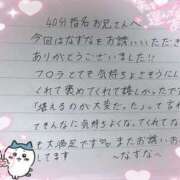 40分指名 お兄さんへ
今回はなずなをお誘いいただき
ありがとうございました!!
フロラとても気持ちよさそうにし
くれて褒めてくれて嬉しかったで
「堪えるのが大変だった」って言わ
てきんなに気持ちよくなってくれてな
も大満足です またお誘いお
してます
〜なずな〜